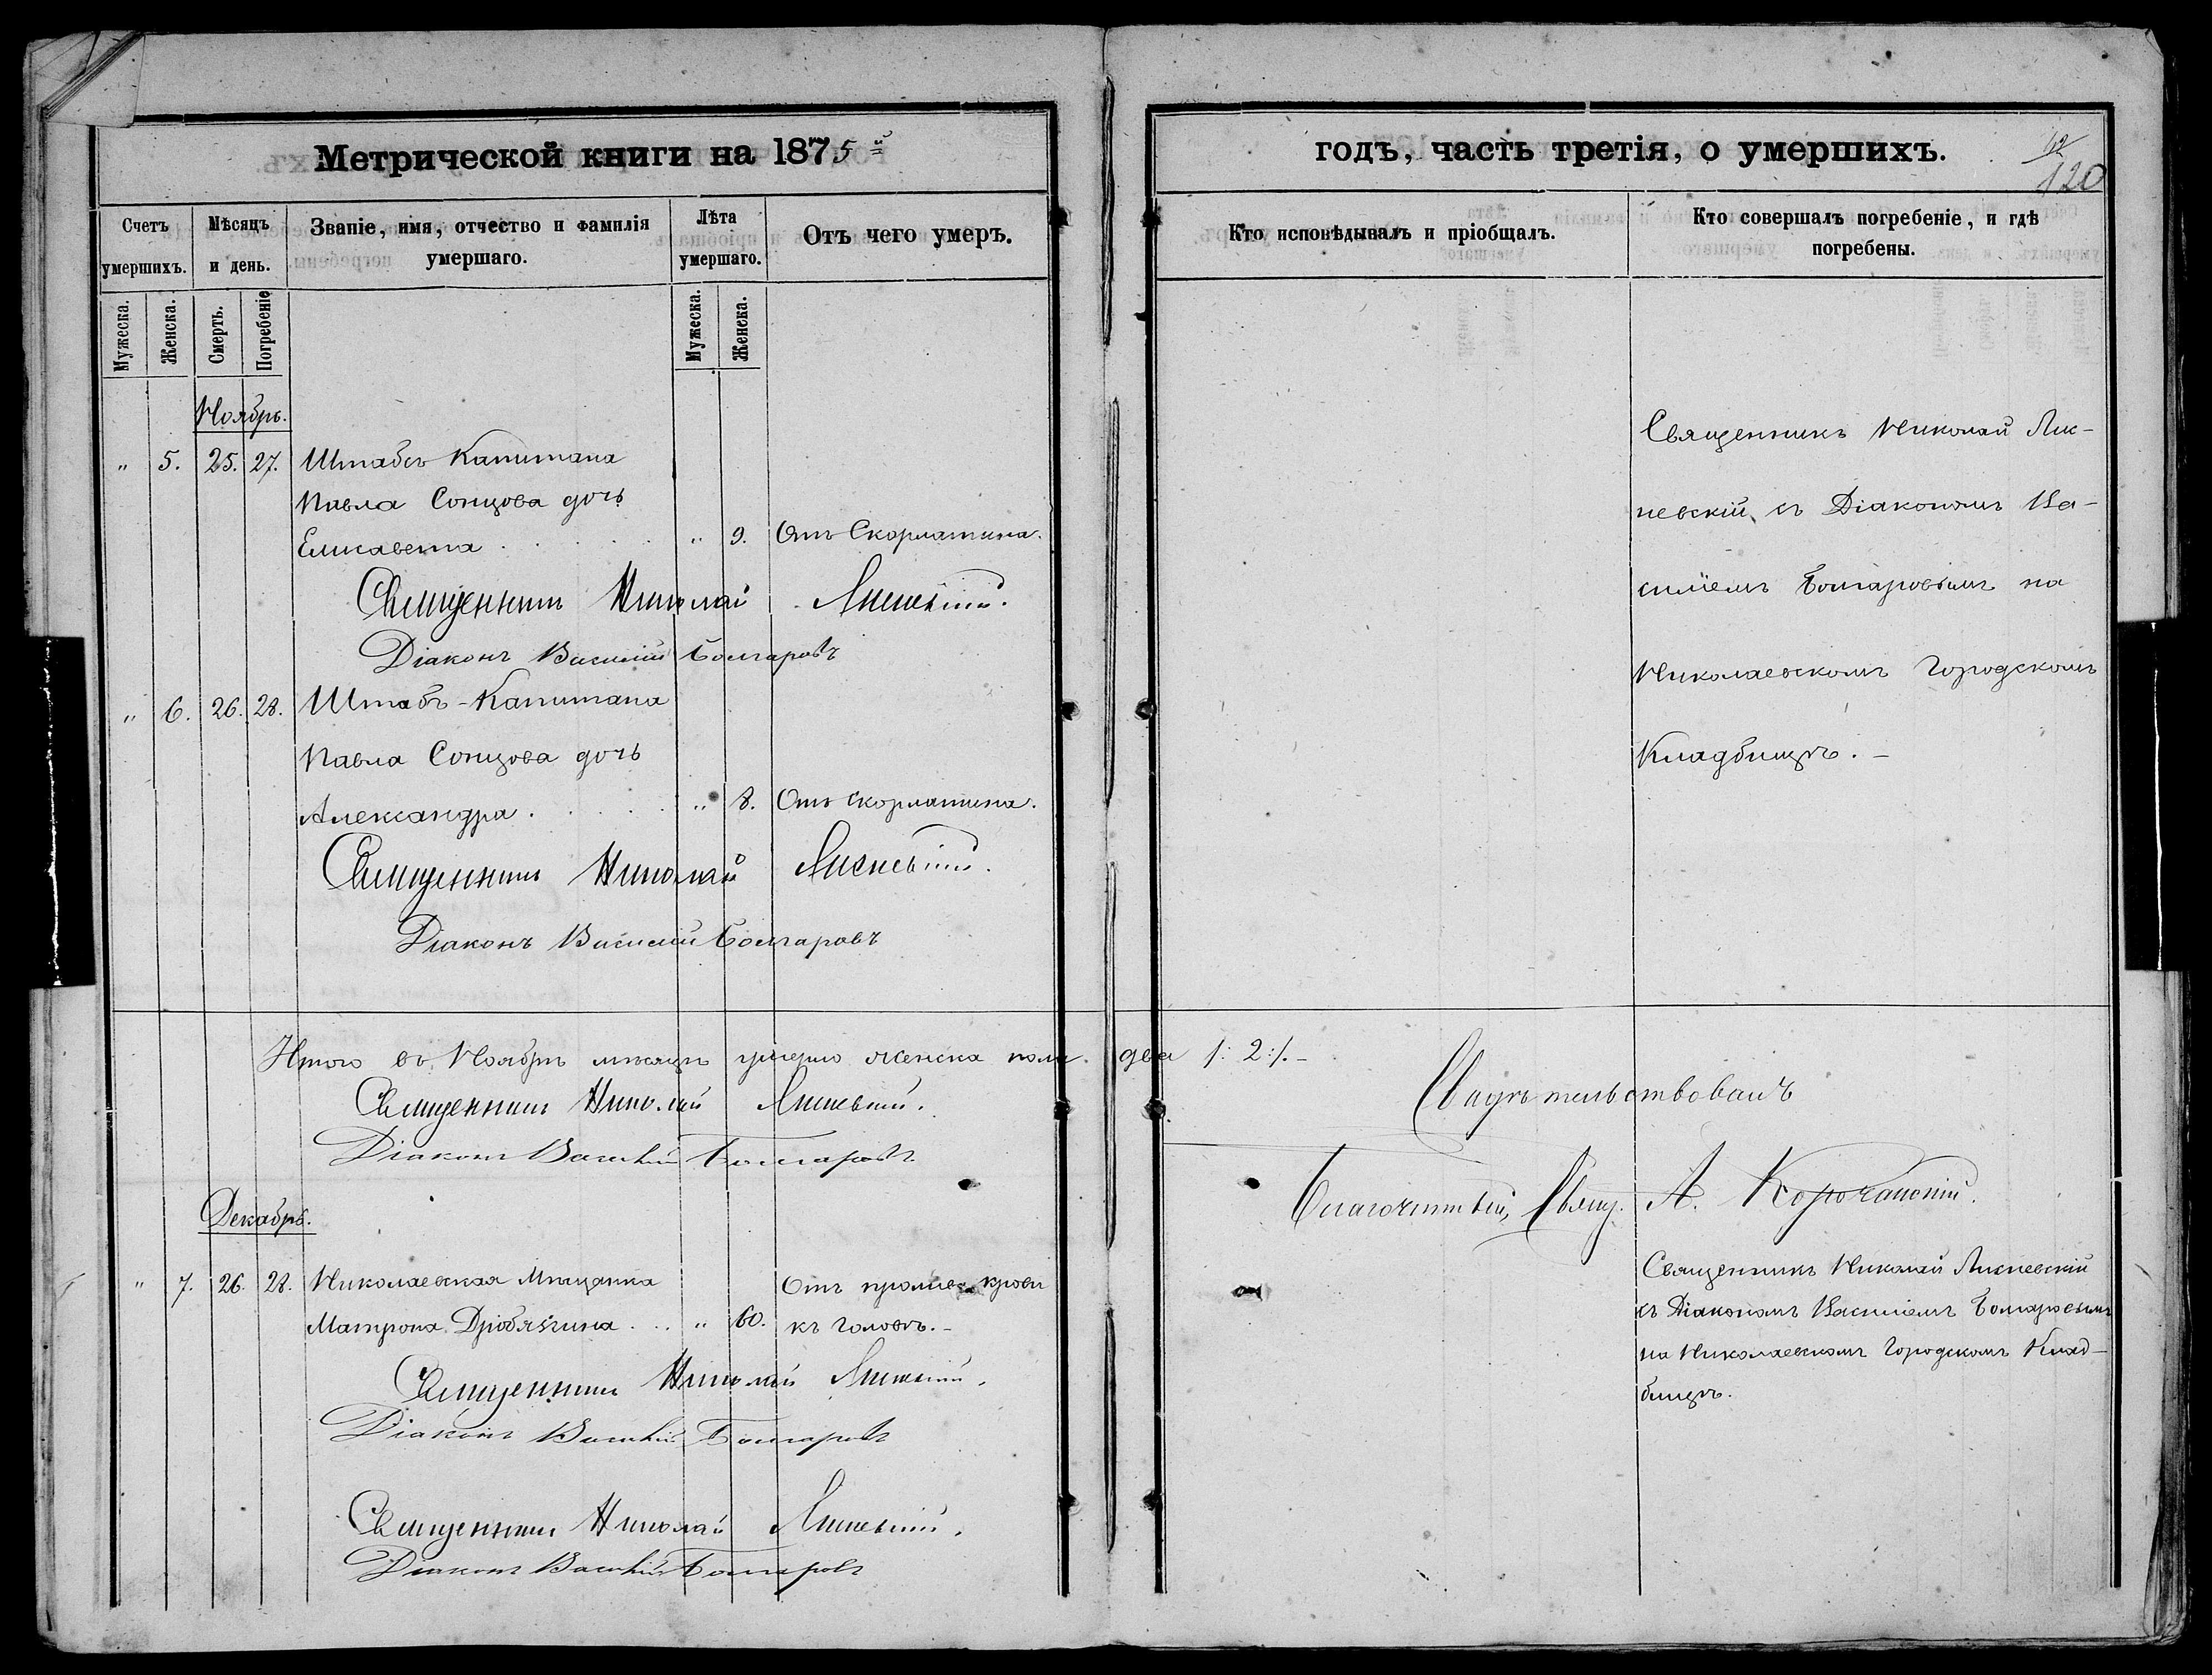 Метрической книги на 1875й
Счетъ умершихъ.
Мѣсяцъ и день.
Званіе, имя, отчество и фамилія умершаго.
Лѣта умершаго.
Отъ чего умеръ.
Мужеска.
Женска.
Смерть.
Погребеніе
Мужеска.
Женска.
Ноябрь.
" 5. 25. 27. Штабсъ Капитана
Павла Сонцова дочь
Елисавета . . . . . " 9. Отъ Скорлатина.
Священникъ Николай
Діаконъ Василій Болгаровъ
" 6. 26. 28. Штабъ-Капитана
Павла Сонцова дочь
Александра . . . . . " 8. Отъ скорлатина.
Священникъ Николай
Діаконъ Василій Болгаровъ
Итого въ Ноябрѣ мѣсяцѣ умерло женска пола два /: 2:/. –
Священникъ Николай
Діаконъ Василій Болгаровъ
Декабрь.
" 7. 26. 28. Николаевская Мѣщанка Отъ крови
Матрона . . . " 60. къ головѣ. –
Священникъ Николай
Діаконъ Василій Болгаровъ
Священникъ Николай
Діаконъ Василій Болгаровъ
годъ, часть третія, о умершихъ.
120
Кто исповѣдывалъ и пріобщалъ.
Кто совершалъ погребеніе, и гдѣ
погребены.
Священникъ Николай Лис-
невскій съ Діакономъ Ва-
силіемъ Болгаровымъ на
Николаевскомъ Городскомъ
Кладбищѣ. –
Свидѣтельствовалъ
Благочинный, Свящ. А. Корочанскій.
Священникъ Николай Лисневскій
съ Діакономъ Василіемъ Болгаровымъ
на Николаевскомъ Городскомъ Клад-
бищѣ.